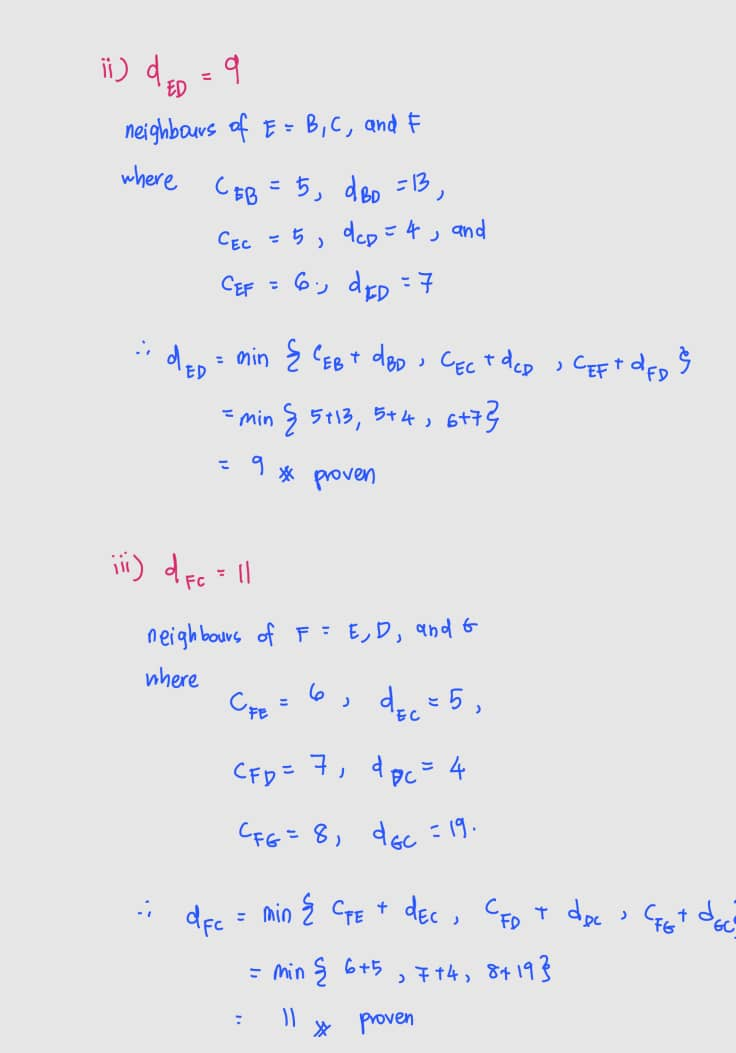 ii) d_ED = 9
neighbours of E = B, C, and F
where C_EB = 5, d_BD = 13,
C_EC = 5, d_CD = 4, and
C_EF = 6, d_FD = 7
∴ d_ED = min { C_EB + d_BD, C_EC + d_CD, C_EF + d_FD }
= min { 5+13, 5+4, 6+7 }
= 9 ※ proven
iii) d_FC = 11
neighbours of F = E, D, and G
where
C_FE = 6, d_EC = 5,
C_FD = 7, d_DC = 4
C_FG = 8, d_GC = 19.
∴ d_FC = min { C_FE + d_EC, C_FD + d_DC, C_FG + d_GC }
= min { 6+5, 7+4, 8+19 }
= 11 ※ proven